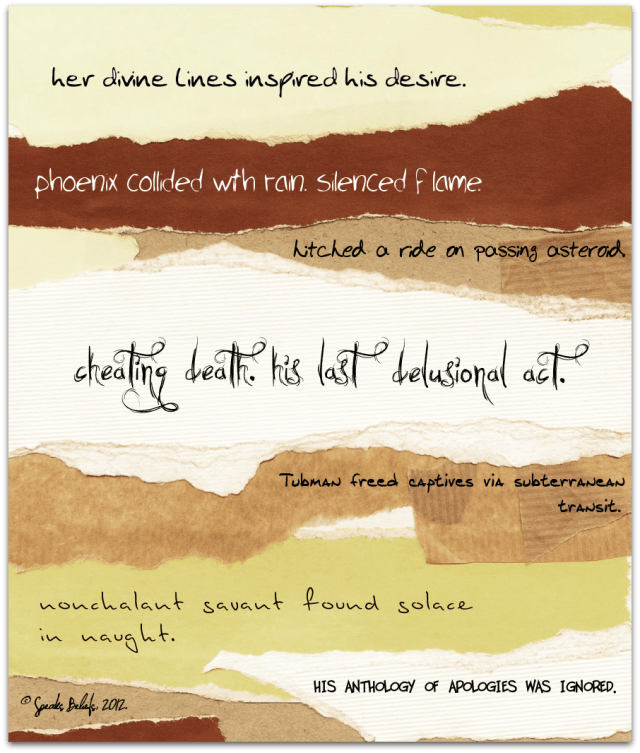 her divine lines inspired his desire.
phoenix collided with rain. silenced flame.
hitched a ride on passing asteroid.
cheating death. his last delusional act.
Tubman freed captives via subterranean
transit.
nonchalant savant found solace
in naught.
HIS ANTHOLOGY OF APOLOGIES WAS IGNORED.
© Speaks Beliefs. 2012.